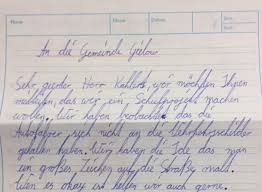 An die Gemeinde Gielow
Sehr geerter Herr Kahlert, wir möchten Ihnen
mitteilen, das wir ein, Schulprojekt machen
wollen. Wir haben beobachtet das die
Autofahrer sich nicht an die Verkehrsschilder
gehalten haben. Wir haben die Idee das man
ein großes Zeichen auf die Straße malt.
Wenn es okay ist helfen wir auch gerne.